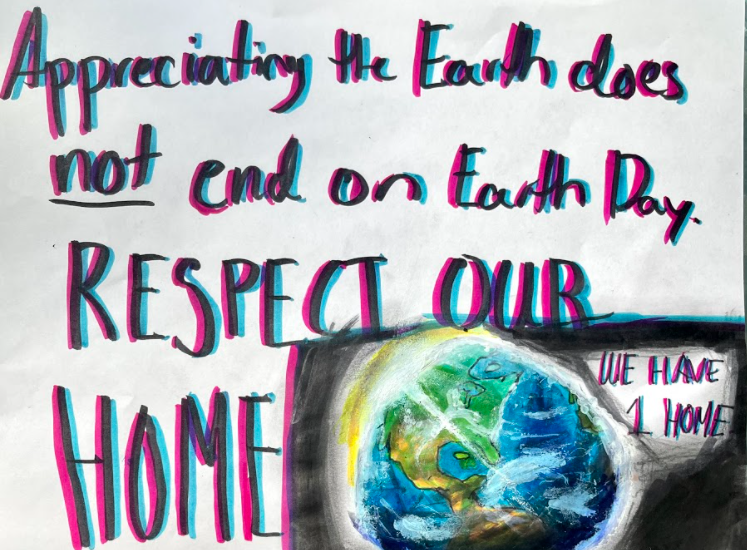 Appreciating the Earth does
not end on Earth Day.
RESPECT OUR
HOME
WE HAVE
1 HOME